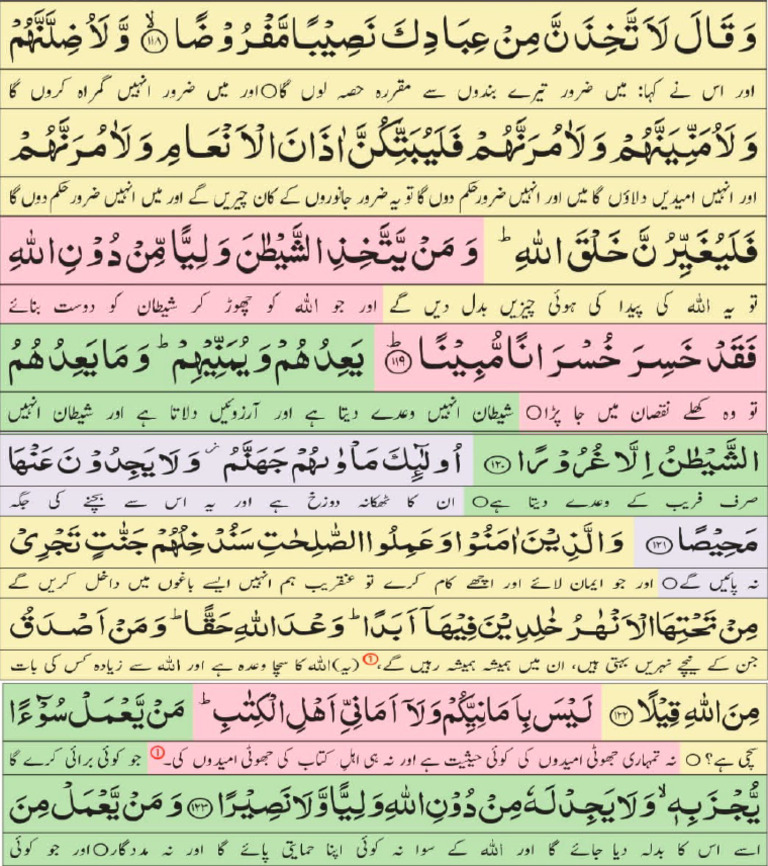 وَقَالَ لَاَتَّخِذَنَّ مِنْ عِبَادِكَ نَصِيْبًا مَّفْرُوْضًا ﴿۱۱۸﴾ۙ وَّلَاُضِلَّنَّهُمْ
اور اس نے کہا: میں ضرور تیرے بندوں سے مقررہ حصہ لوں گا○ اور میں ضرور انہیں گمراہ کروں گا
وَلَاُمَنِّيَنَّهُمْ وَلَاٰمُرَنَّهُمْ فَلَيُبَتِّكُنَّ اٰذَانَ الْاَنْعَامِ وَلَاٰمُرَنَّهُمْ
اور انہیں امیدیں دلاؤں گا میں اور انہیں ضرور حکم دوں گا تو یہ ضرور جانوروں کے کان چیریں گے اور میں انہیں ضرور حکم دوں گا
فَلَيُغَيِّرُنَّ خَلْقَ اللّٰهِ ؕ وَمَنْ يَّتَّخِذِ الشَّيْطٰنَ وَلِيًّا مِّنْ دُوْنِ اللّٰهِ
تو یہ اللہ کی پیدا کی ہوئی چیزیں بدل دیں گے اور جو اللہ کو چھوڑ کر شیطان کو دوست بنائے
فَقَدْ خَسِرَ خُسْرَانًا مُّبِيْنًا ﴿۱۱۹﴾ؕ يَعِدُهُمْ وَيُمَنِّيْهِمْ ؕ وَمَا يَعِدُهُمُ
تو وہ کھلے نقصان میں جا پڑا○ شیطان انہیں وعدے دیتا ہے اور آرزوئیں دلاتا ہے اور شیطان انہیں
الشَّيْطٰنُ اِلَّا غُرُوْرًا ﴿۱۲۰﴾ اُولٰٓئِكَ مَاْوٰىهُمْ جَهَنَّمُ ۫ وَلَا يَجِدُوْنَ عَنْهَا
صرف فریب کے وعدے دیتا ہے○ ان کا ٹھکانہ دوزخ ہے اور یہ اس سے بچنے کی جگہ
مَحِيْصًا ﴿۱۲۱﴾ وَالَّذِيْنَ اٰمَنُوْا وَعَمِلُوا الصّٰلِحٰتِ سَنُدْخِلُهُمْ جَنّٰتٍ تَجْرِيْ
نہ پائیں گے○ اور جو ایمان لائے اور اچھے کام کرے تو عنقریب ہم انہیں ایسے باغوں میں داخل کریں گے
مِنْ تَحْتِهَا الْاَنْهٰرُ خٰلِدِيْنَ فِيْهَاۤ اَبَدًا ؕ وَعْدَ اللّٰهِ حَقًّا ؕ وَمَنْ اَصْدَقُ
جن کے نیچے نہریں بہتی ہیں، ان میں ہمیشہ ہمیشہ رہیں گے، ① (یہ) اللہ کا سچا وعدہ ہے اور اللہ سے زیادہ کس کی بات
مِنَ اللّٰهِ قِيْلًا ﴿۱۲۲﴾ لَيْسَ بِاَمَانِيِّكُمْ وَلَاۤ اَمَانِيِّ اَهْلِ الْكِتٰبِ ؕ مَنْ يَّعْمَلْ سُوْٓءًا
سچی ہے؟○ نہ تمہاری جھوٹی امیدوں کی کوئی حیثیت ہے اور نہ ہی اہلِ کتاب کی جھوٹی امیدوں کی۔ ① جو کوئی برائی کرے گا
يُّجْزَ بِهٖ ۙ وَلَا يَجِدْ لَهٗ مِنْ دُوْنِ اللّٰهِ وَلِيًّا وَّلَا نَصِيْرًا ﴿۱۲۳﴾ وَمَنْ يَّعْمَلْ مِنَ
اسے اس کا بدلہ دیا جائے گا اور اللہ کے سوا نہ کوئی اپنا حمایتی پائے گا اور نہ مددگار○ اور جو کوئی